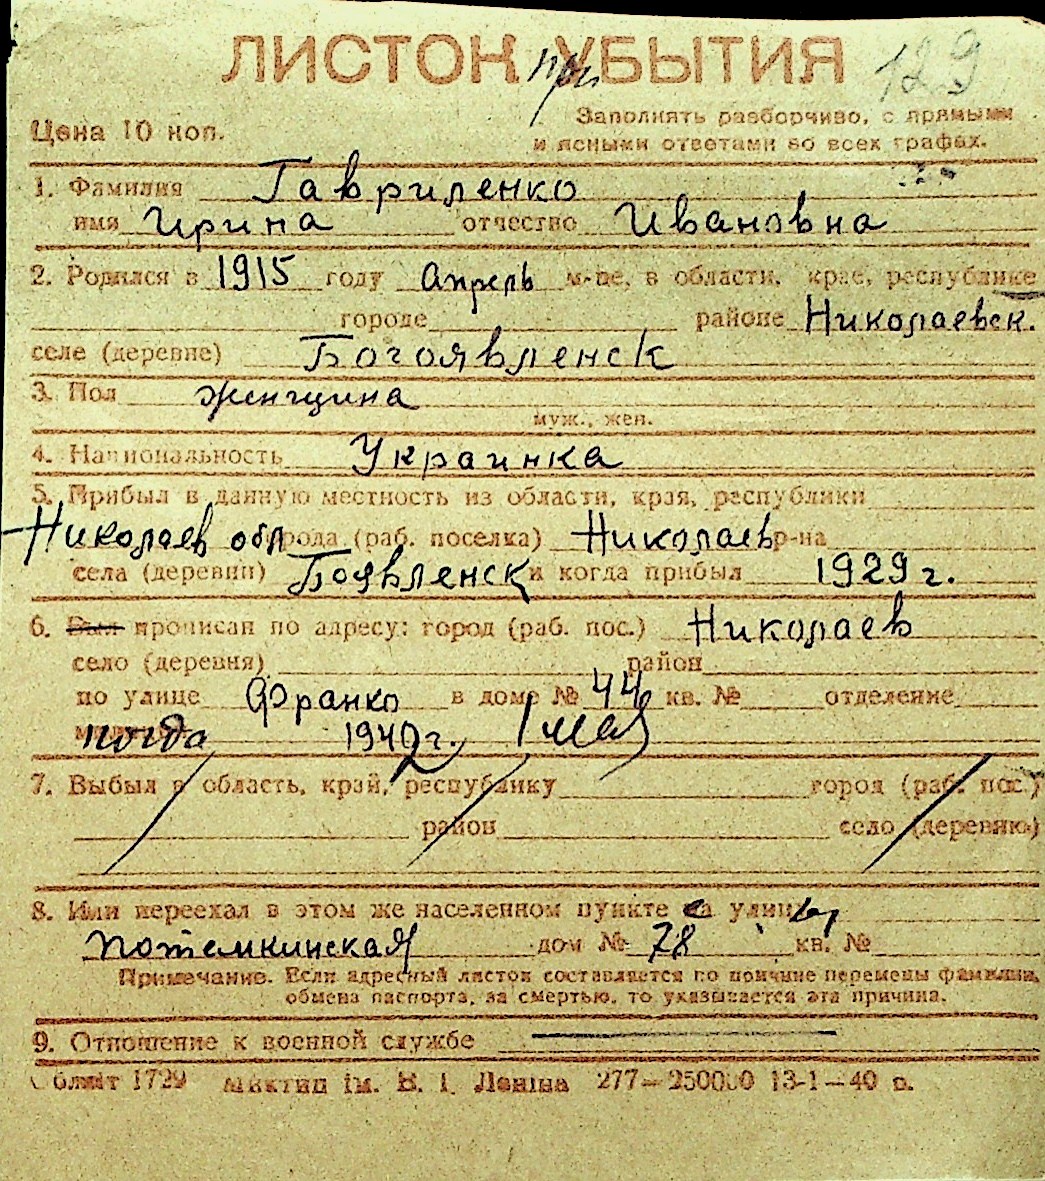 ЛИСТОК при УБЫТИЯ 129
Цена 10 коп.
Заполнять разборчиво, с прямыми
и ясными ответами во всех графах.
1. Фамилия Гавриленко
имя Ирина отчество Ивановна
2. Родился в 1915 году Апрель м-це, в области, крае, республике
городе районе Николаевск.
селе (деревне) Богоявленск
3. Пол женщина
муж., жен.
4. Национальность Украинка
5. Прибыл в данную местность из области, края, республики
Николаев обл города (раб. поселка) Николаев р-на
села (деревни) Боявленск и когда прибыл 1929 г.
6. Был прописан по адресу: город (раб. пос.) Николаев
село (деревня) район
по улице Франко в доме № 44 кв. № отделение
когда 1942 г. 1 мая
7. Выбыл в область, край, республику город (раб. пос.)
район село (деревню)
8. Или переехал в этом же населенном пункте с улицы
Потемкинская дом № 78 кв. №
Примечание. Если адресный листок составляется по причине перемены фамилии,
обмена паспорта, за смертью, то указывается эта причина.
9. Отношение к военной службе
Обліт 1729 ім. В. І. Леніна 277—250000 13-1—40 р.